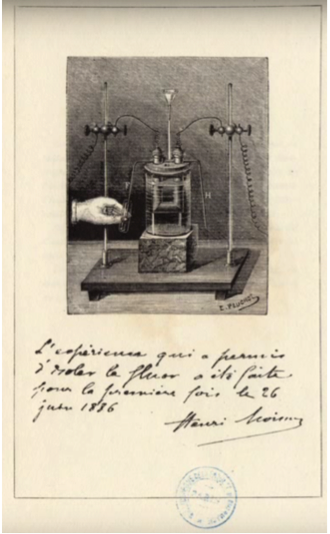 H
E. POYET
L'expérience qui a permis
d'isoler le fluor a été faite
pour la première fois le 26
juin 1886
Henri Moissan